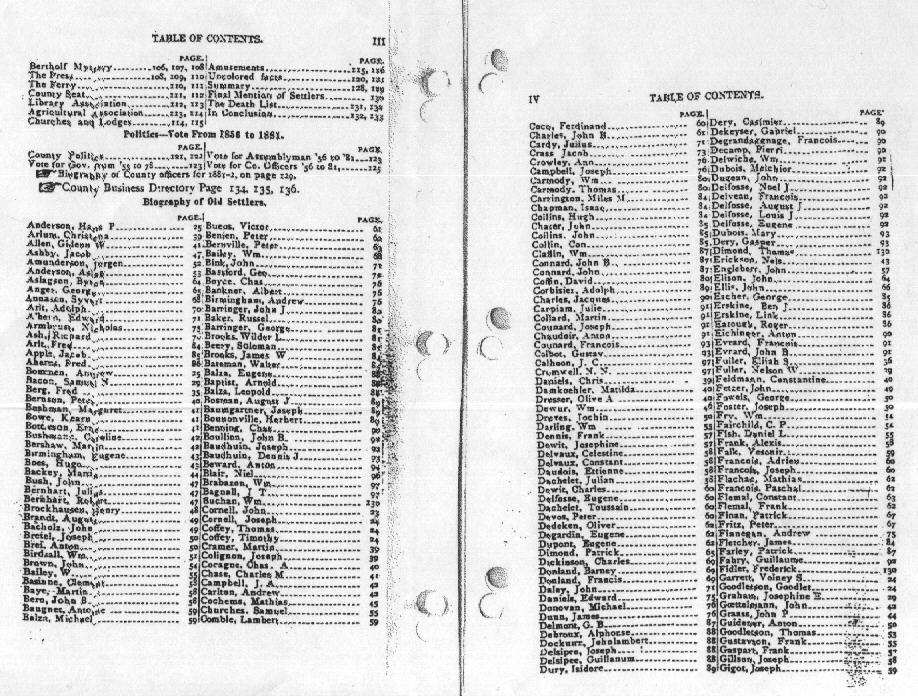 TABLE OF CONTENTS. III
PAGE.
Bertholf Mystery 106, 107, 108
The Press 108, 209, 110
The Ferry 110, 111
County Seat 111, 112
Library Association 112, 113
Agricultural Association 113, 114
Churches and Lodges 114, 115
PAGE.
Amusements 115, 116
Uncolored facts 120, 121
Summary 128, 129
Final Mention of Settlers 130
The Death List 131, 132
In Conclusion 132, 133
Politics—Vote From 1856 to 1881.
County Politics 121, 122
Vote for Gov. from '55 to 78 123
Vote for Assemblyman '56 to '81 123
Vote for Co. Officers '56 to 81 125
Biography of County officers for 1881-2, on page 129.
County Business Directory Page 134, 135, 136.
Biography of Old Settlers.
PAGE.
Anderson, Hans P 25
Arlum, Christena 39
Allen, Gideon W 41
Ashby, Jacob 47
Amunderson, Jorgen 52
Anderson, Aslag 53
Aslagson, Byron 64
Anger, George 65
Annasen, Syvert 68
Arlt, Adolph 70
Ahern, Edward 71
Armbrust, Nicholas 73
Ash, Richard 70
Arlt, Fred 84
Apple, Jacob 85
Ahrens, Fred 86
Bowman, Andrew 25
Bacon, Samuel N. 29
Berg, Fred 35
Bernson, Peter 40
Bushman, Margaret 41
Bowe, Kearn 41
Bottleson, Erne 41
Bushman, Caroline 42
Bershaw, Martin 42
Birmingham, Eugene 43
Boes, Hugo 45
Backey, Martin 47
Bush, John 47
Bernhart, Julius 47
Bernhart, Robert 47
Brockhausen, Henry 48
Brandt, August 49
Bacholz, John 49
Bretel, Joseph 50
Brei, Anton 50
Birdsall, Wm 51
Brown, John 54
Bailey, W 55
Basiane, Clement 58
Baye, Martin 58
Bero, John B. 58
Baugnet, Antoine 59
Balza, Michael 59
PAGE.
Bueos, Victor 61
Benjen, Peter 62
Bernville, Peter 63
Bailey, Wm 68
Bink, John 71
Bassford, Geo 72
Boyce, Chas 75
Bankner, Albert 76
Birmingham, Andrew 76
Barringer, John J 80
Baker, Russel 80
Barringer, George 81
Brooks, Wilder L.
Beery, Soloman
Brooks, James W
Bateman, Walter
Balza, Eugene
Baptist, Arnold
Balza, Leopold
Bosman, August J 89
Baumgartner, Joseph 89
Bounonville, Herbert 89
Benning, Chas 90
Boullion, John B. 92
Baudhuin, Joseph 92
Baudhuin, Dennis J 93
Beward, Anton 94
Blair, Niel 96
Brabazon, Wm 97
Bagnall, J T 97
Buchan, Wm 130
Cornell, John 23
Cornell, Joseph 24
Coffey, Thomas 24
Coffey, Timothy 24
Cramer, Martin 39
Colignon, Joseph 39
Coragne, Chas. A 40
Chase, Charles M 41
Campbell, J. A 42
Carlton, Andrew 42
Cochems, Mathias 45
Churches, Samuel 55
Comble, Lambert 59
IV TABLE OF CONTENTS.
PAGE.
Caco, Ferdinand 60
Charles, John B. 61
Cardy, Julius 71
Crass Jacob 73
Crowley, Ann 76
Campbell, Joseph 76
Carmody, Wm 80
Carmody, Thomas 80
Carrington, Miles M 84
Chapman, Isaac 84
Collins, Hugh 84
Chater, John 85
Collins, John 85
Collin, Con 85
Claflin, Wm 87
Connard, John B. 87
Connard, John 87
Coffin, David 88
Corbisier, Adolph 89
Charles, Jacques 90
Carpiam, Julie 91
Collard, Martin 91
Counard, Joseph 91
Chaudoir, Anton 92
Counard, Francois 93
Colbot, Gustav 93
Calhoon, J. C. 97
Cromwell, N. N. 97
Daniels, Chris 39
Damkoehler, Matilda 40
Dresser, Olive A 40
Dewur, Wm 46
Dreves, Jochin 50
Darling, Wm 55
Dennis, Frank 57
Dewit, Josephine 58
Delvaux, Celestine 58
Delvaux, Constant 58
Daudois, Ettienne 58
Dachelet, Julian 58
Dewit, Charles 60
Delfosse, Eugene 60
Dachelet, Toussain 60
Devos, Peter 60
Dedeken, Oliver 60
Degardin, Eugene 62
Dupont, Eugene 62
Dimond, Patrick 65
Dickinson, Charles 69
Donland, Barney 69
Donland, Francis 69
Daley, John 71
Daniels, Edward 75
Donovan, Michael 76
Dunn, James 76
Delmont, G. B 87
Debroux, Alphonse 88
Dockunx, Jeholambert 88
Delsipee, Joseph 88
Delsipee, Guillanum 88
Dury, Isidore 89
PAGE
Dery, Cassimier 89
Dekeyser, Gabriel 90
Degrandagnage, Francois 90
Decamp, Pierri 90
Delwiche, Wm 91
Dubois, Melchior 92
Dugean, John 92
Delfosse, Noel J 92
Delveau, Francois 92
Delfosse, August J 92
Delfosse, Louis J 92
Delfosse, Eugene 92
Dubois, Mary 93
Dery, Gasper 93
Dimond, Thomas 130
Erickson, Nels 43
Englebert, John 57
Elison, John 64
Ellis, John 66
Escher, George 85
Erskine, Ben J 86
Erskine, Link 86
Eatough, Roger 86
Eichinger, Anton 90
Evrard, Francois 91
Evrard, John B 91
Fuller, Elijah S 36
Fuller, Nelson W 29
Feldmann, Constantine 40
Fetzer, John 49
Fowels, George 50
Foster, Joseph 50
Fry, Wm 54
Fairchild, C. P. 52
Fish, Daniel L 55
Frank, Alexis 58
Falk, Vesonir 59
Francois, Adrien 60
Francois, Joseph 60
Flachac, Mathias 62
Francois, Paschal 62
Flemal, Constant 63
Flemal, Frank 62
Finan, Patrick 67
Fritz, Peter 67
Flanegan, Andrew 75
Fletcher, James 84
Farley, Patrick 87
Fabry, Guillaume 92
Fidler, Frederick 130
Garrett, Volney S 24
Goodletson, Goodlet 24
Graham, Josephine E 29
Goettelmann, John 42
Graass, John P 44
Guidener, Anton 50
Goodletson, Thomas 53
Gustavson, Frank 55
Gaspart, Frank 57
Gillson, Joseph 58
Gigot, Joseph 59